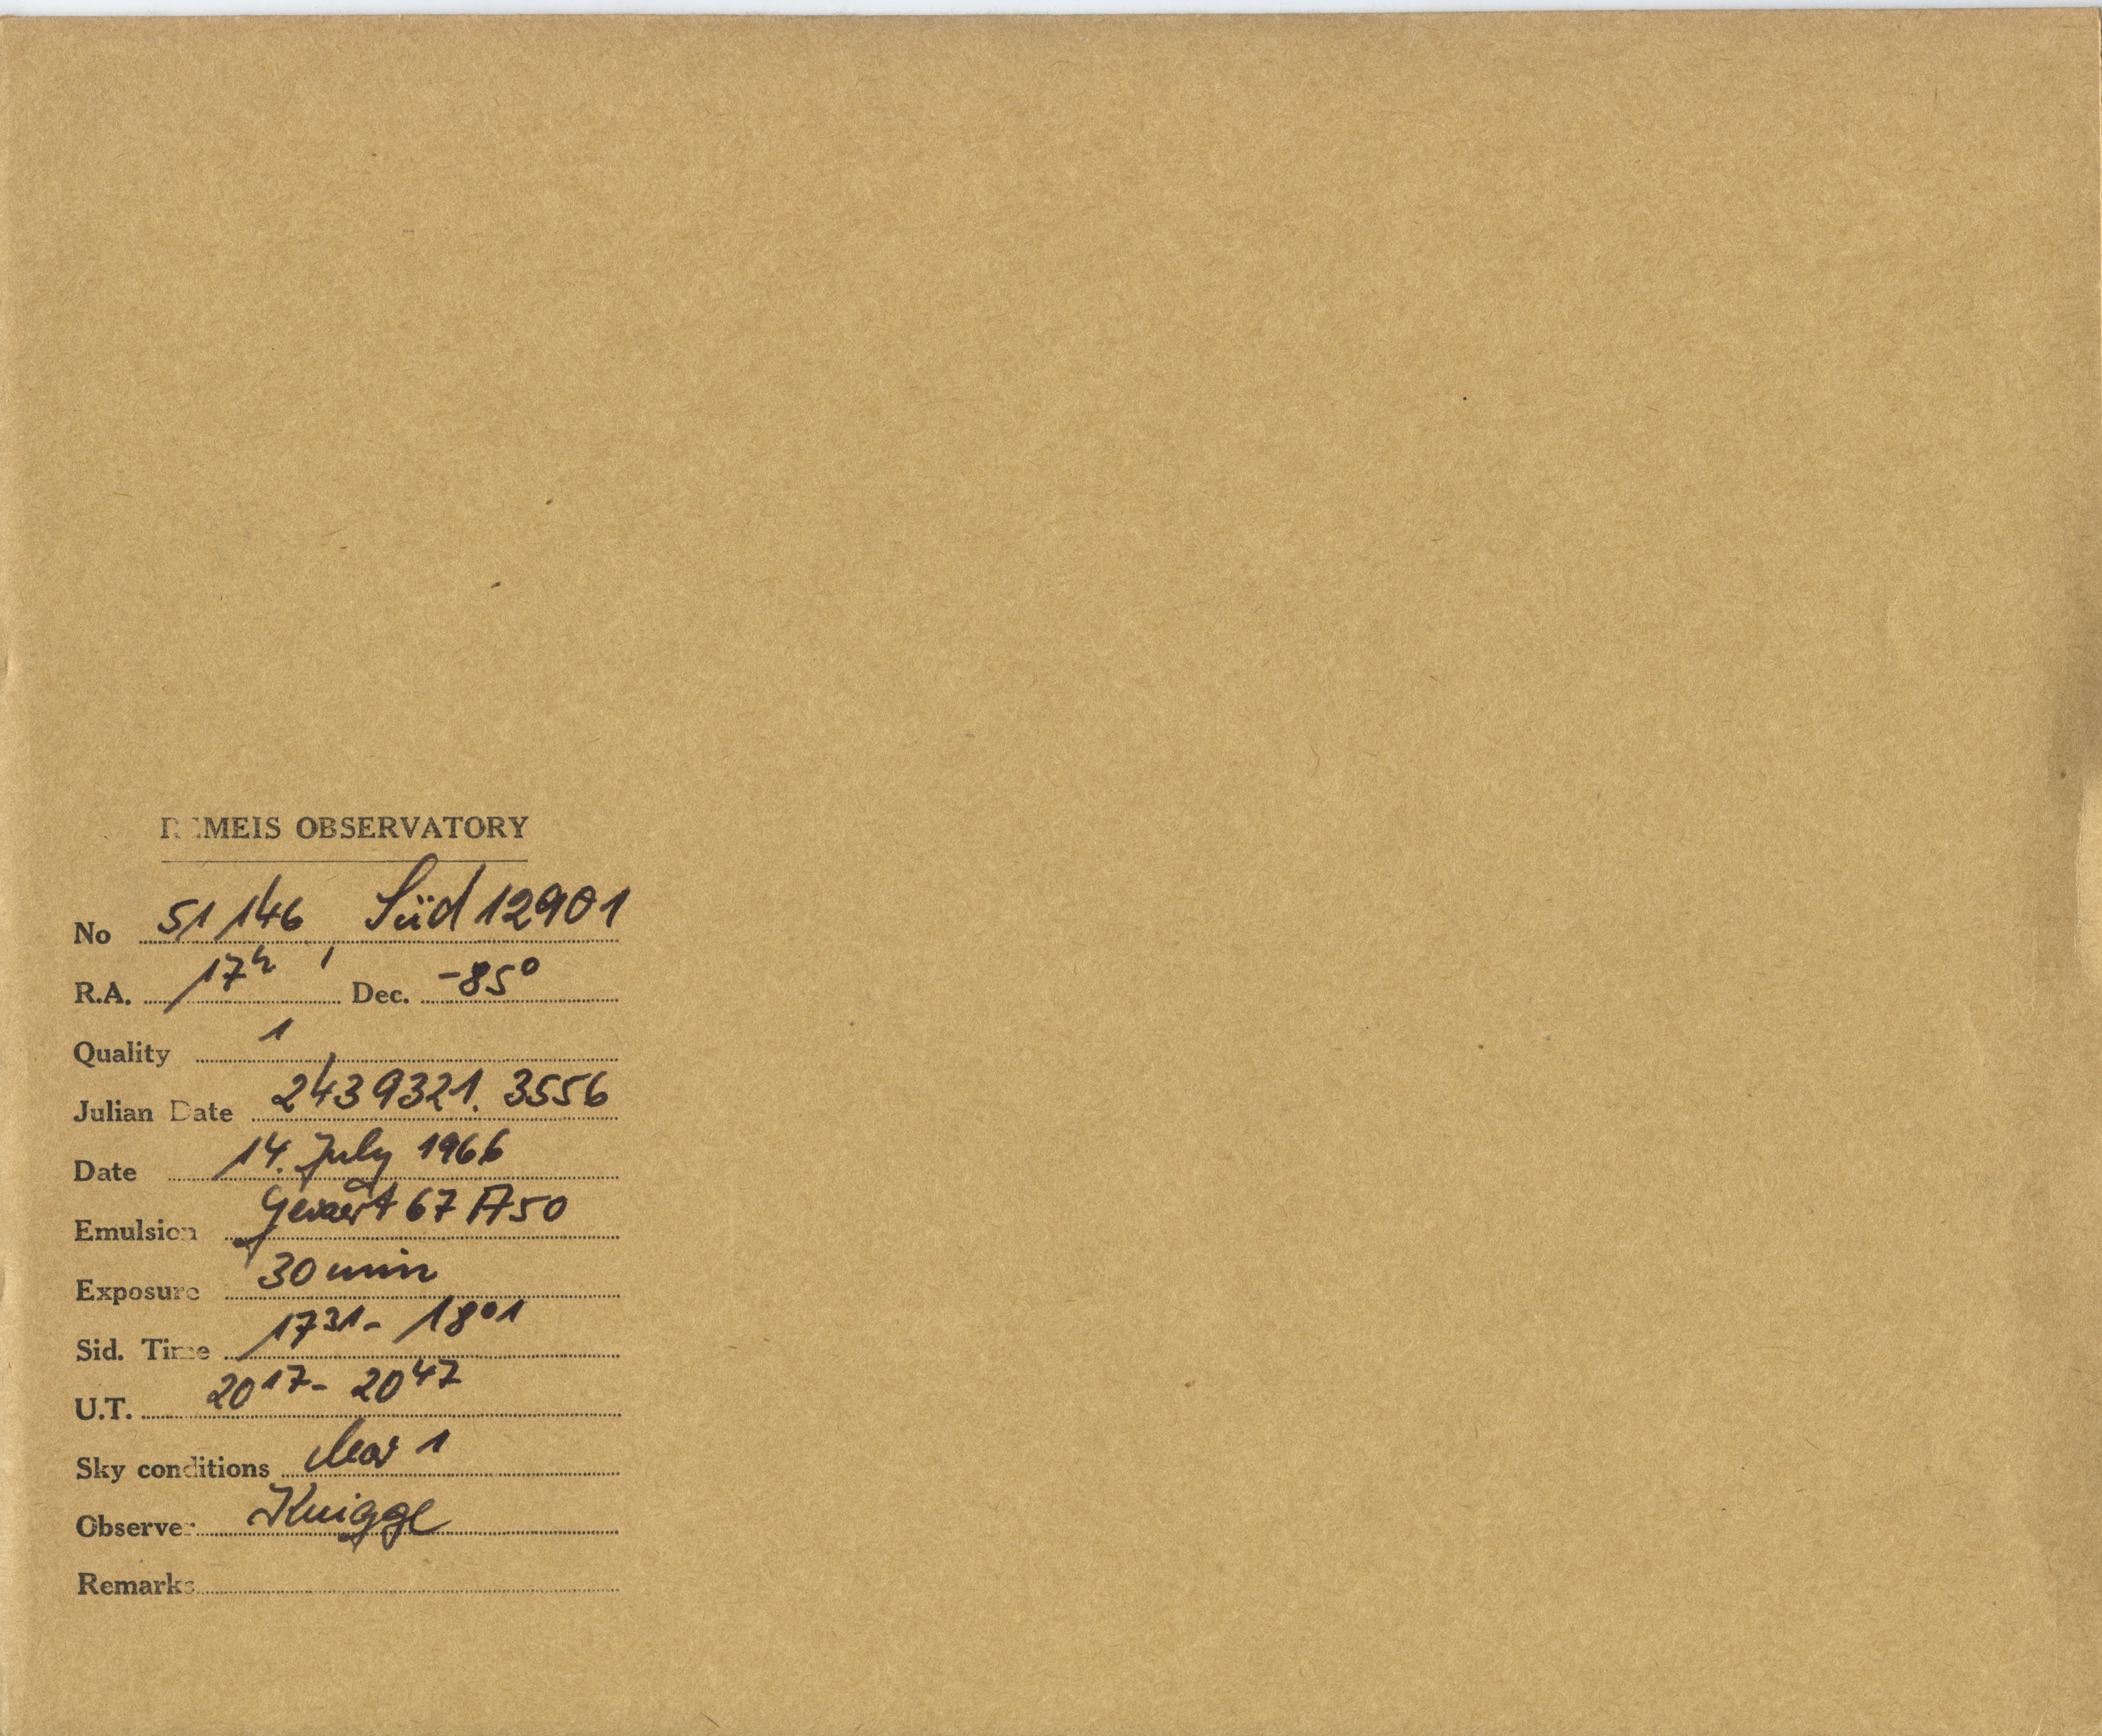 REMEIS OBSERVATORY
No 51146 Süd 12901
R.A. 17ʰ Dec. -85°
Quality 1
Julian Date 2439321.3556
Date 14. July 1966
Emulsion Gevaert 67 A50
Exposure 30 min
Sid. Time 17³¹- 18⁰¹
U.T. 20¹⁷- 20⁴⁷
Sky conditions clear 1
Observer Knigge
Remarks